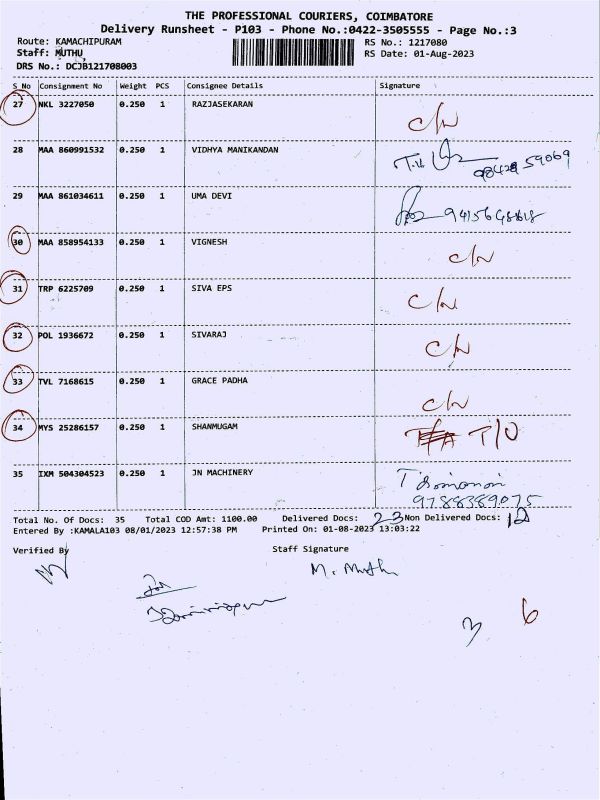 THE PROFESSIONAL COURIERS, COIMBATORE
Delivery Runsheet - P103 - Phone No.:0422-3505555 - Page No.:3
Route: KAMACHIPURAM RS No.: 1217080
Staff: MUTHU, RS Date: 01-Aug-2023
DRS No.: DCJB121708003
S No Consignment No Weight PCS Consignee Details Signature
27 NKL 3227050 0.250 1 RAZJASEKARAN C/N
28 MAA 860991532 0.250 1 VIDHYA MANIKANDAN
29 MAA 861034611 0.250 1 UMA DEVI
30 MAA 858954133 0.250 1 VIGNESH C/N
31 TRP 6225709 0.250 1 SIVA EPS C/N
32 POL 1936672 0.250 1 SIVARAJ C/N
33 TVL 7168615 0.250 1 GRACE PADHA C/N
34 MYS 25286157 0.250 1 SHANMUGAM T/U
35 IXM 504304523 0.250 1 JN MACHINERY
9788389075
Total No. Of Docs: 35 Total COD Amt: 1100.00 Delivered Docs: 23 Non Delivered Docs: 12
Entered By :KAMALA103 08/01/2023 12:57:38 PM Printed On: 01-08-2023 13:03:22
Verified By Staff Signature
M. Muth
3 6